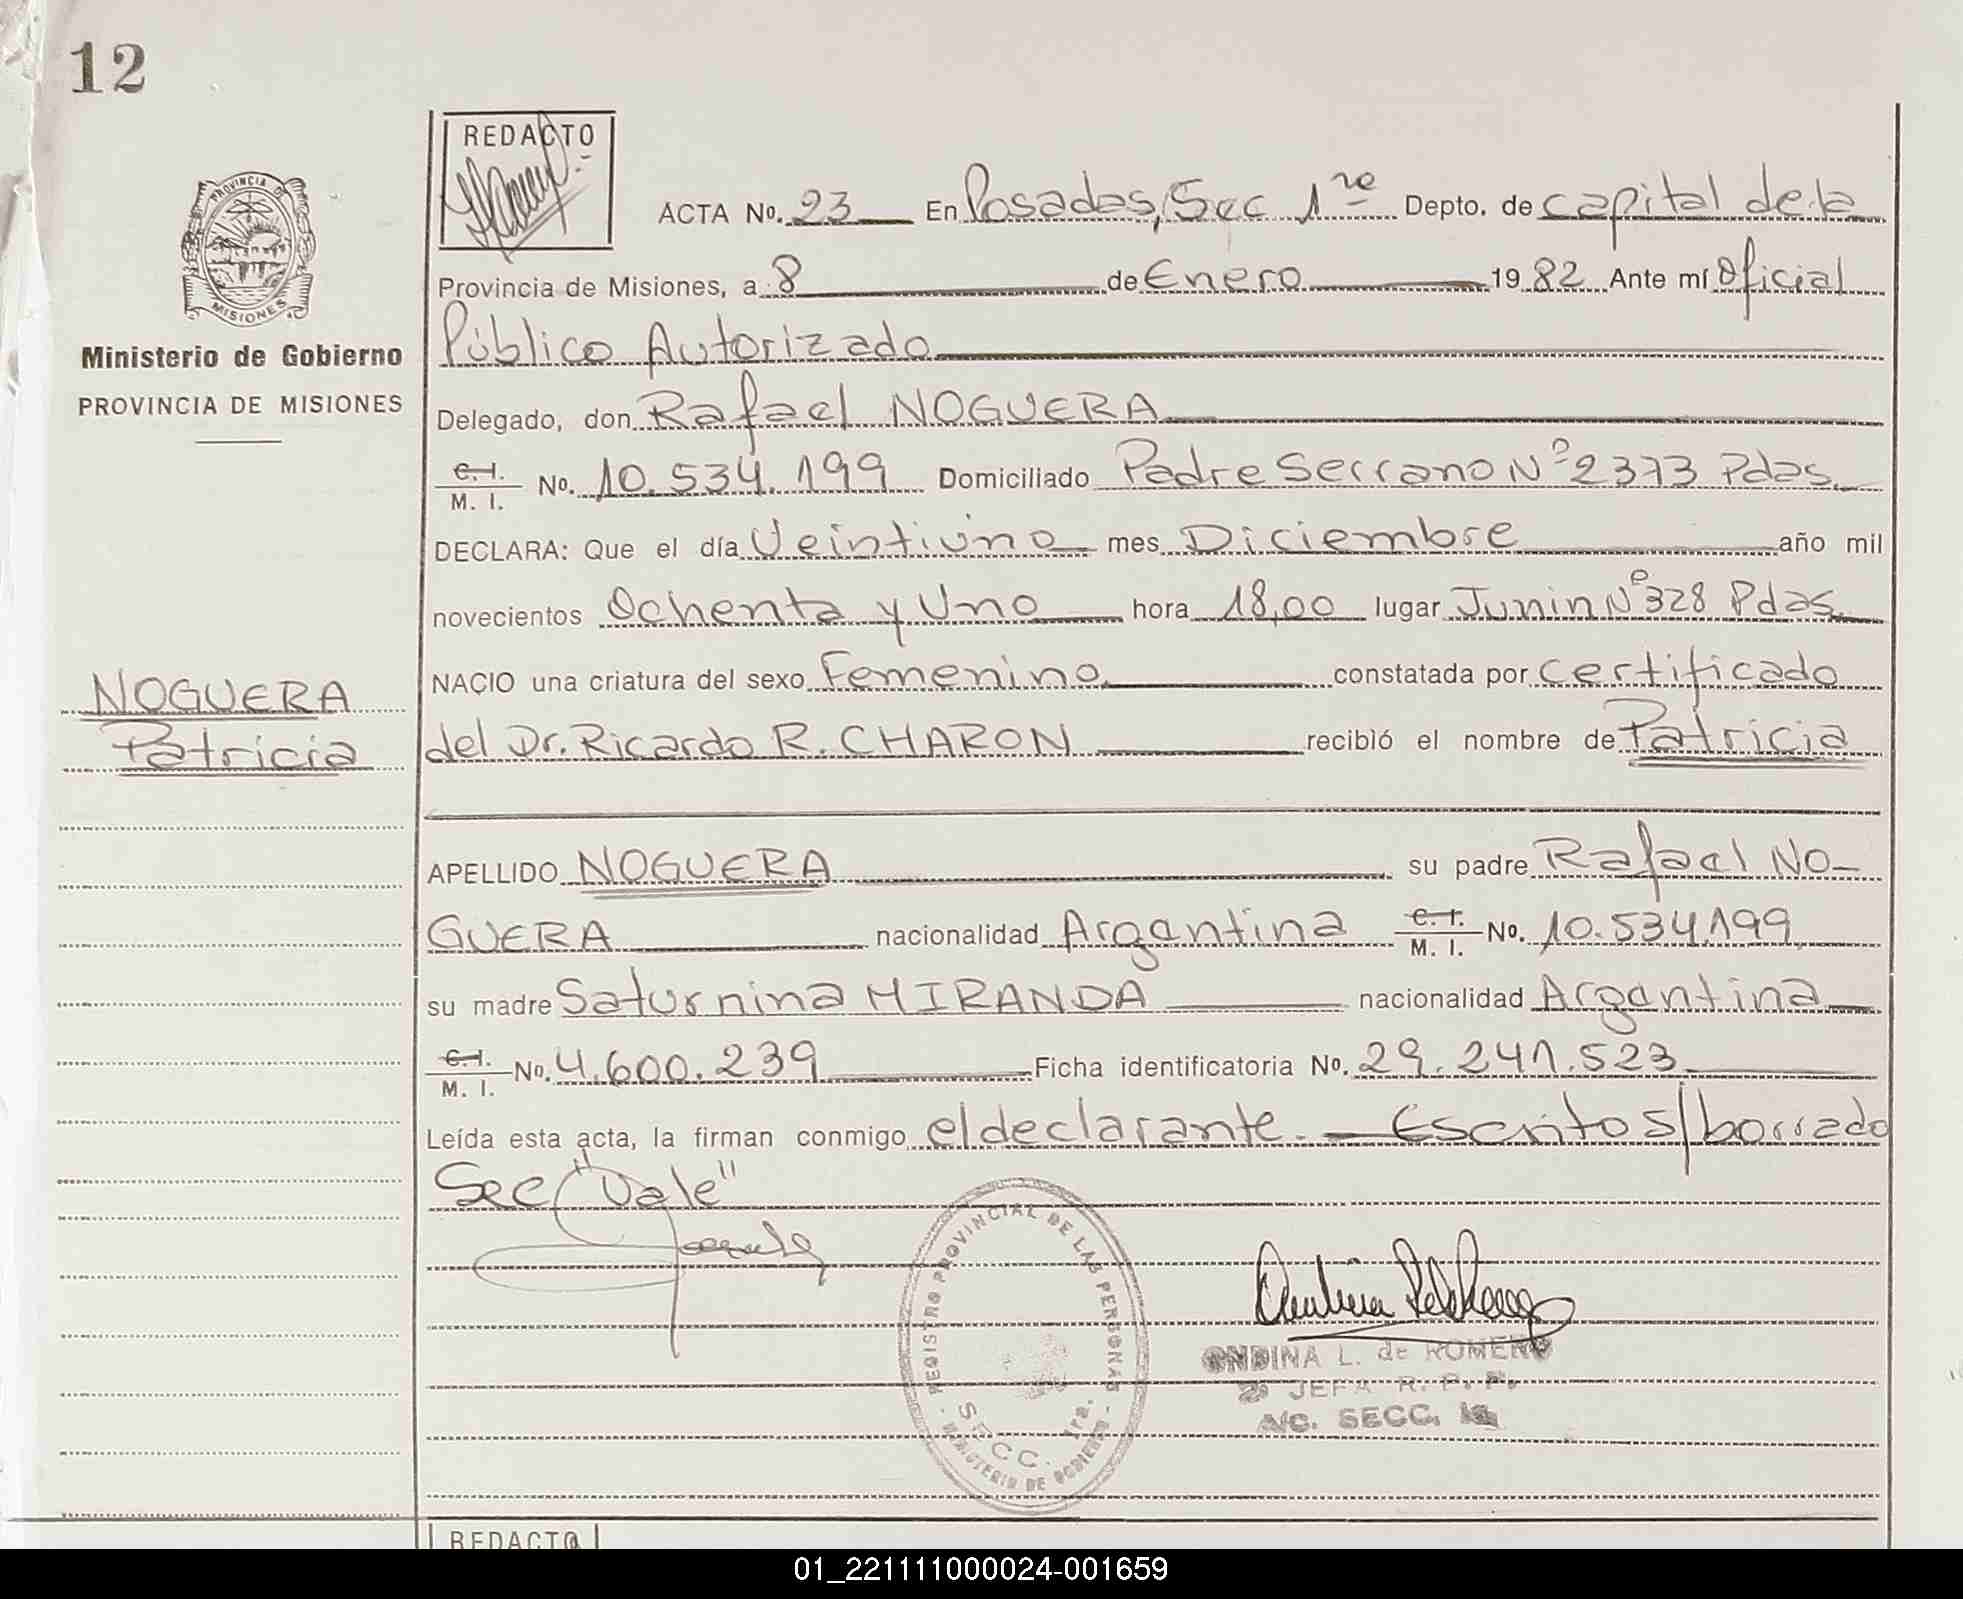 12
REDACTO
PROVINCIA DE
MISIONES
Ministerio de Gobierno
PROVINCIA DE MISIONES
NOGUERA
Patricia
ACTA No. 23 En Posadas, Sec 1ra Depto. de Capital de la
Provincia de Misiones, a 8 de Enero 1982 Ante mí Oficial
Público Autorizado
Delegado, don Rafael NOGUERA
C. I.
M. I. No. 10.534.199 Domiciliado Padre Serrano Nº 2373 Pdas.
DECLARA: Que el día Veintiuno mes Diciembre año mil
novecientos Ochenta y Uno hora 18,00 lugar Junin Nº 328 Pdas.
NACIO una criatura del sexo Femenino constatada por certificado
del Dr. Ricardo R. CHARON recibió el nombre de Patricia
APELLIDO NOGUERA su padre Rafael NO-
GUERA nacionalidad Argentina C. I. M. I. No. 10.534.199
su madre Saturnina MIRANDA nacionalidad Argentina
C. I.
M. I. No. 4.600.239 Ficha identificatoria No. 29.241.523
Leída esta acta, la firman conmigo el declarante. Escrito s/borrado
Sec "Vale"
REGISTRO PROVINCIAL DE LAS PERSONAS
SECC. 1ra.
MINISTERIO DE GOBIERNO
ONDINA L. de ROMERO
JEFA R. P. P.
A/C. SECC. 1a
REDACTO
01_221111000024-001659